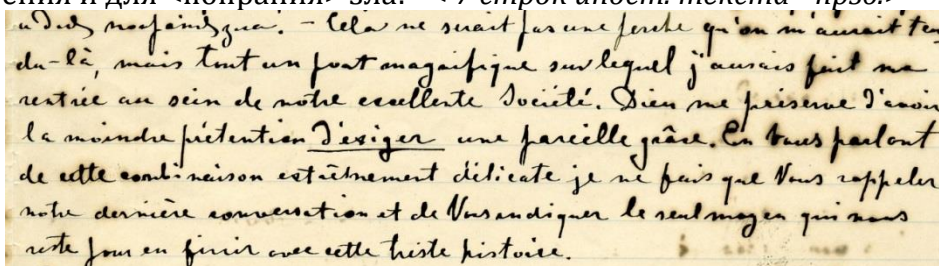 ения и для <попрания> зла. – < 7 строк иност. текста – прзб.>
и для попрания зла. – Cela ne serait pas une perche qu'on m'aurait ten
du-là, mais tout un pont magnifique sur lequel j'aurais fait ma
rentrée au sein de notre excellente Société. Dieu me préserve d'avoir
la moindre prétention d'exiger une pareille grâce. En Vous parlant
de cette combinaison extrêmement délicate je ne fais que Vous rappeler
notre dernière conversation et de Vous indiquer le seul moyen qui nous
reste pour en finir avec cette triste histoire.